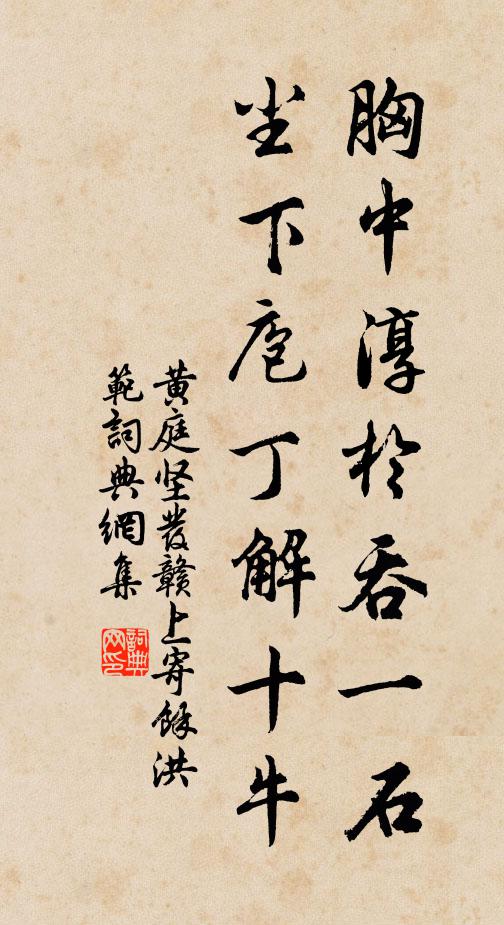 胸中淳於吞一石
坐下庖丁解十牛
黄庭坚發贛上寄餘洪
範詞典網集
詞典
网印